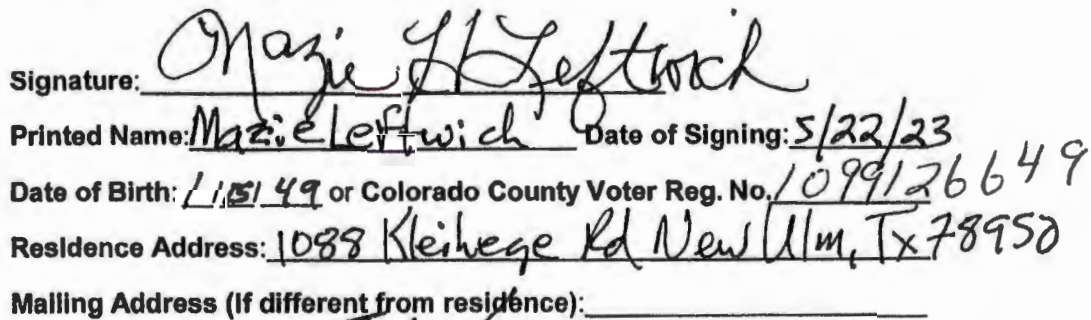 Signature: Mazie H Leftwich
Printed Name: Mazie Leftwich Date of Signing: 5/22/23
Date of Birth: 1/15/49 or Colorado County Voter Reg. No. 1099126649
Residence Address: 1088 Kleiwege Rd New Ulm, Tx 78950
Mailing Address (If different from residence):